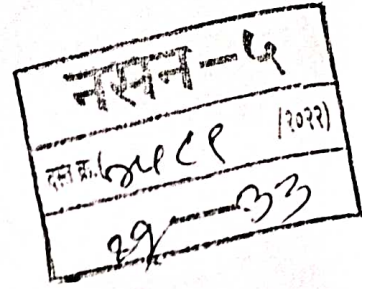 नसन-५
दस्त क्र. ७५८९ /२०२२)
—३३